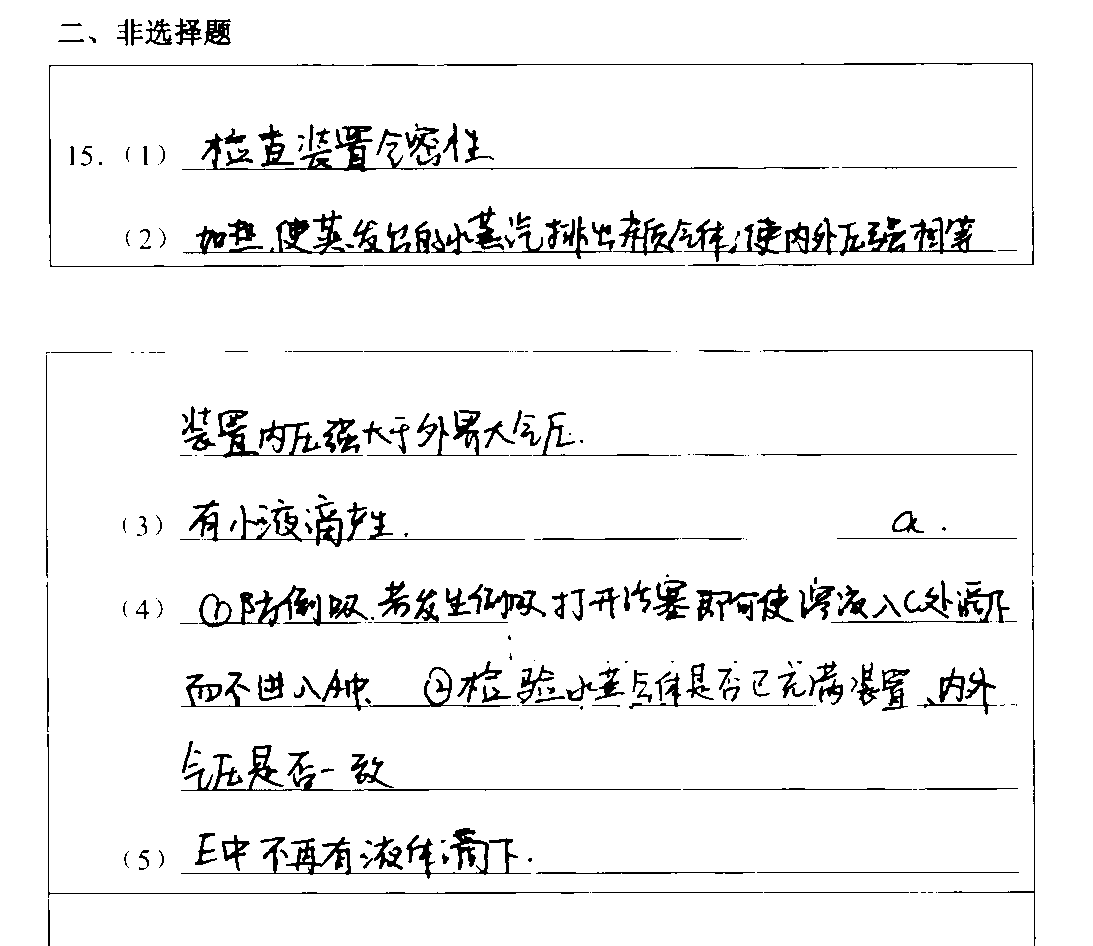 二、非选择题
15.（1）检查装置气密性
（2）加热,使蒸发出的水蒸汽排出杂质气体;使内外压强相等
装置内压强大于外界大气压.
（3）有小液滴产生. a.
（4）①防倒吸.若发生倒吸打开活塞即可使溶液入C处滴下
而不进入A中、 ②检验水蒸气体是否已充满装置、内外
气压是否一致
（5）E中不再有液体滴下.